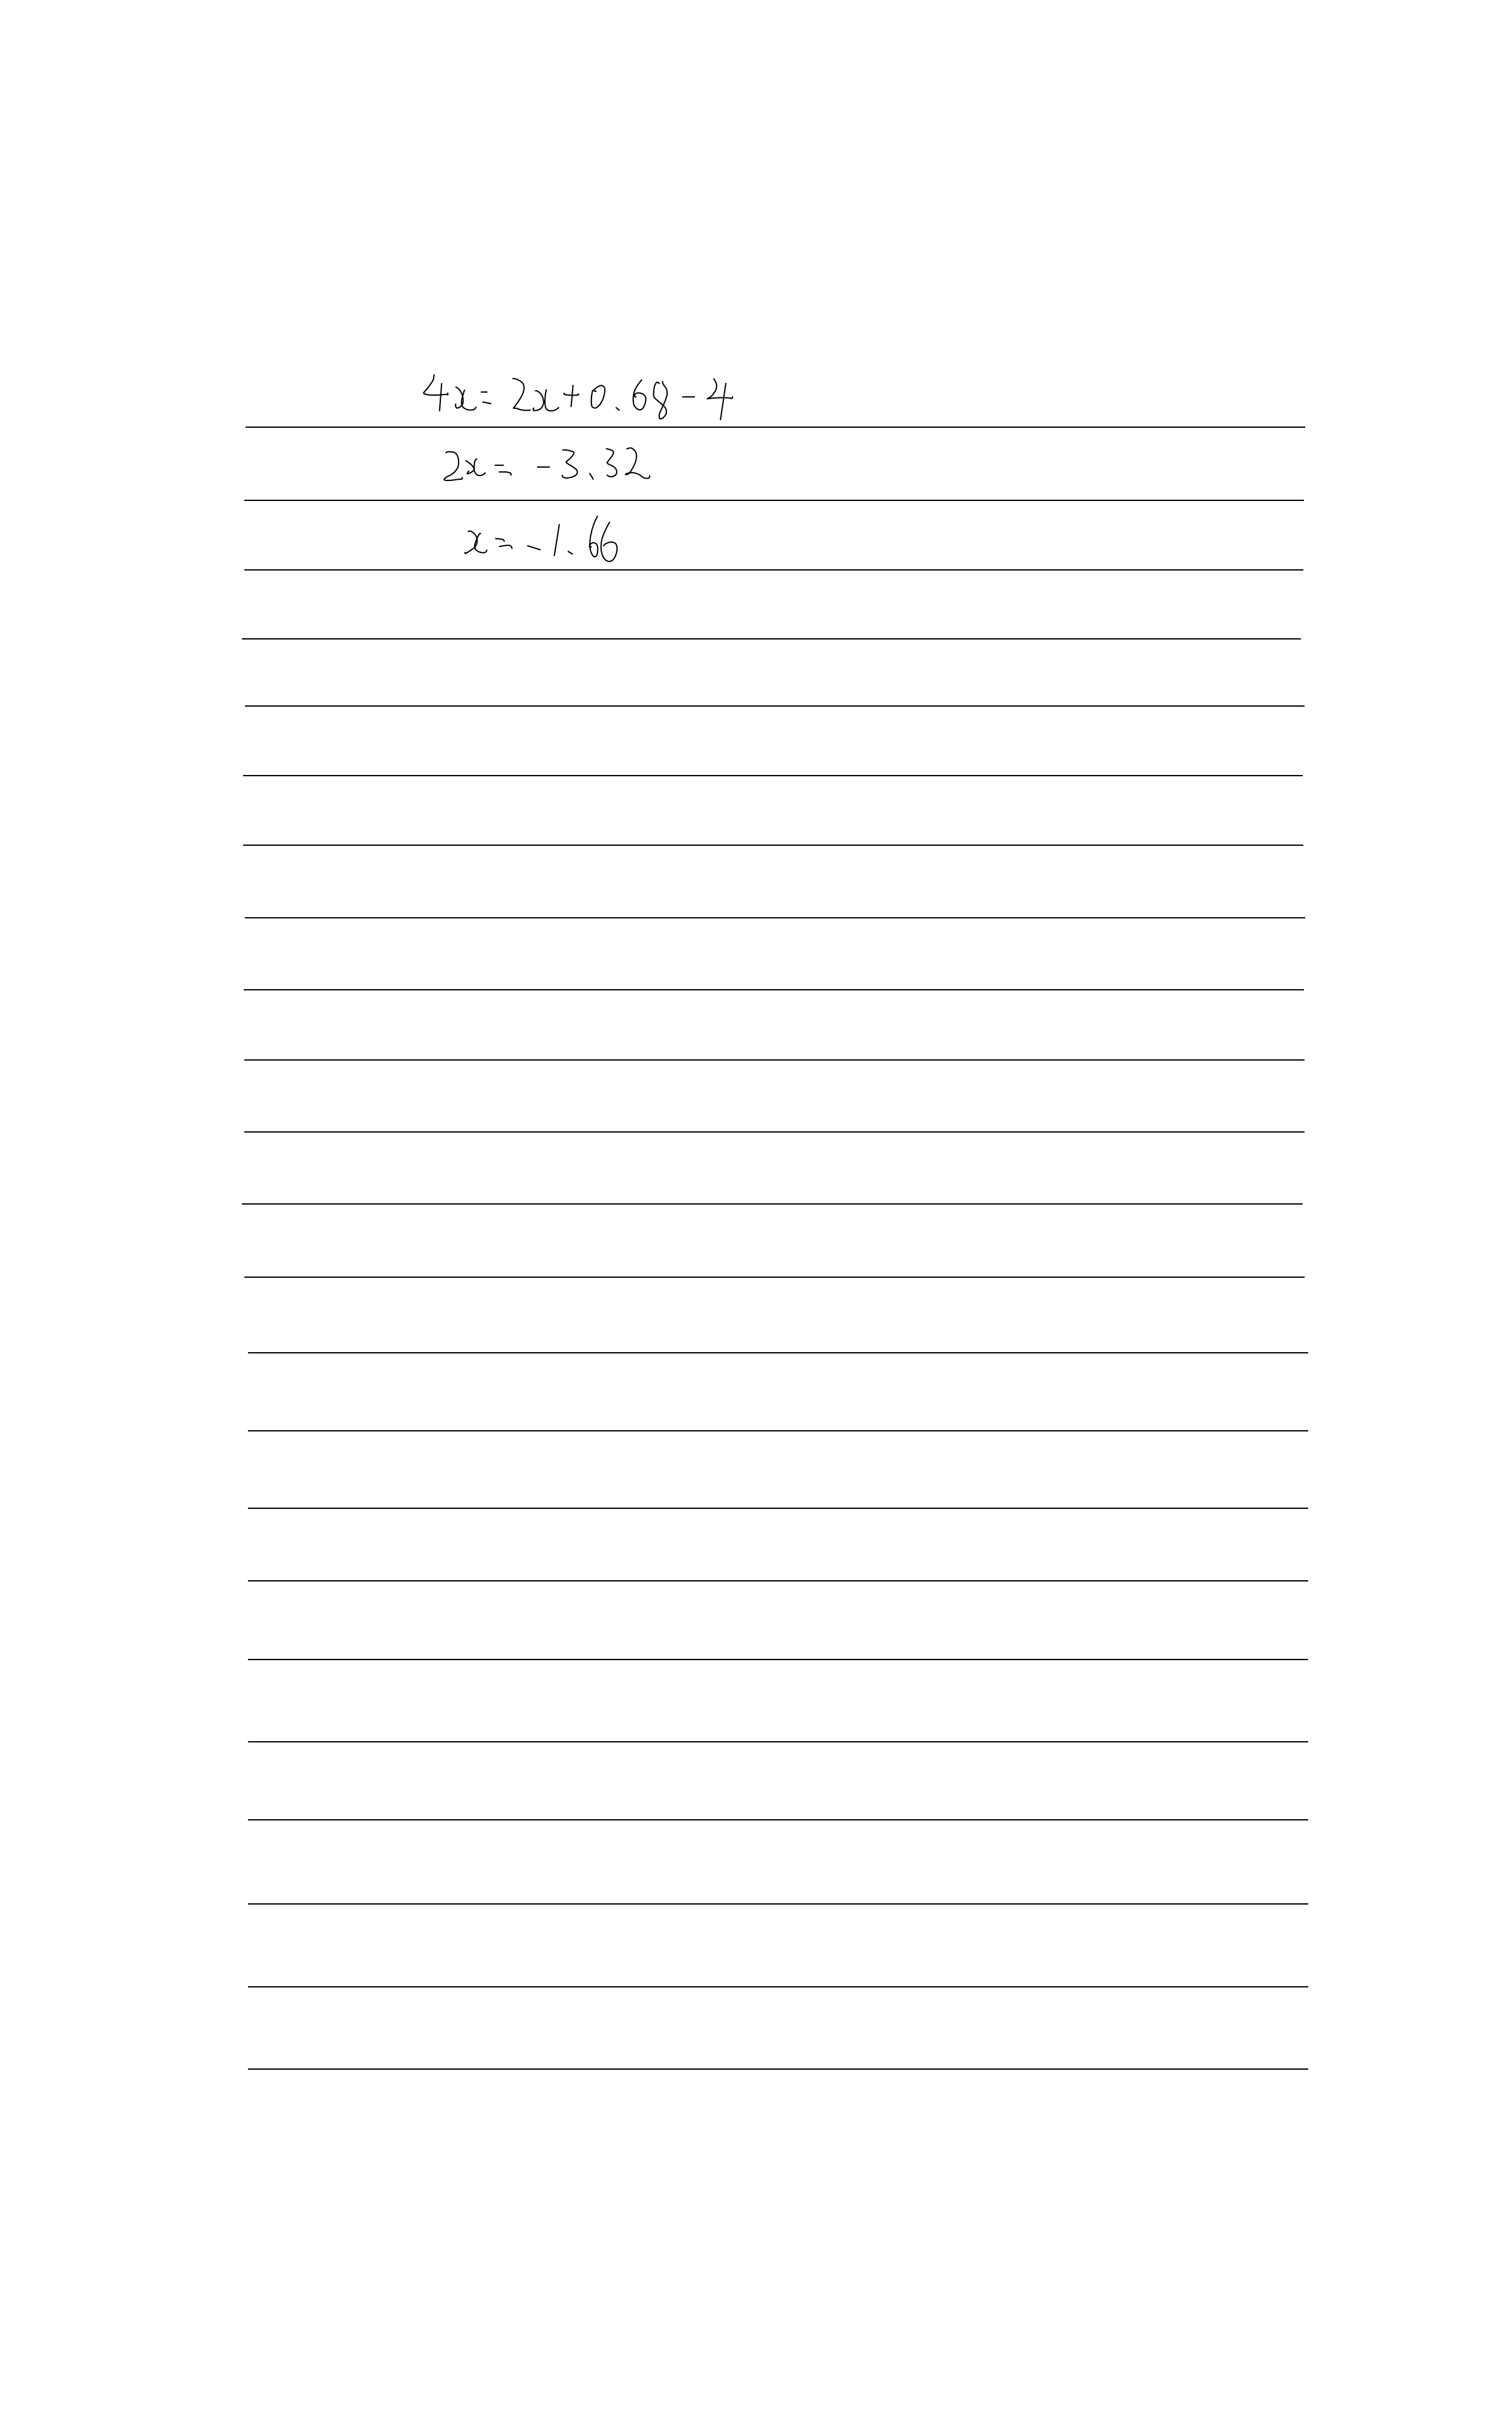 4x=2x+0.68-4
2x=-3.32
x=-1.66